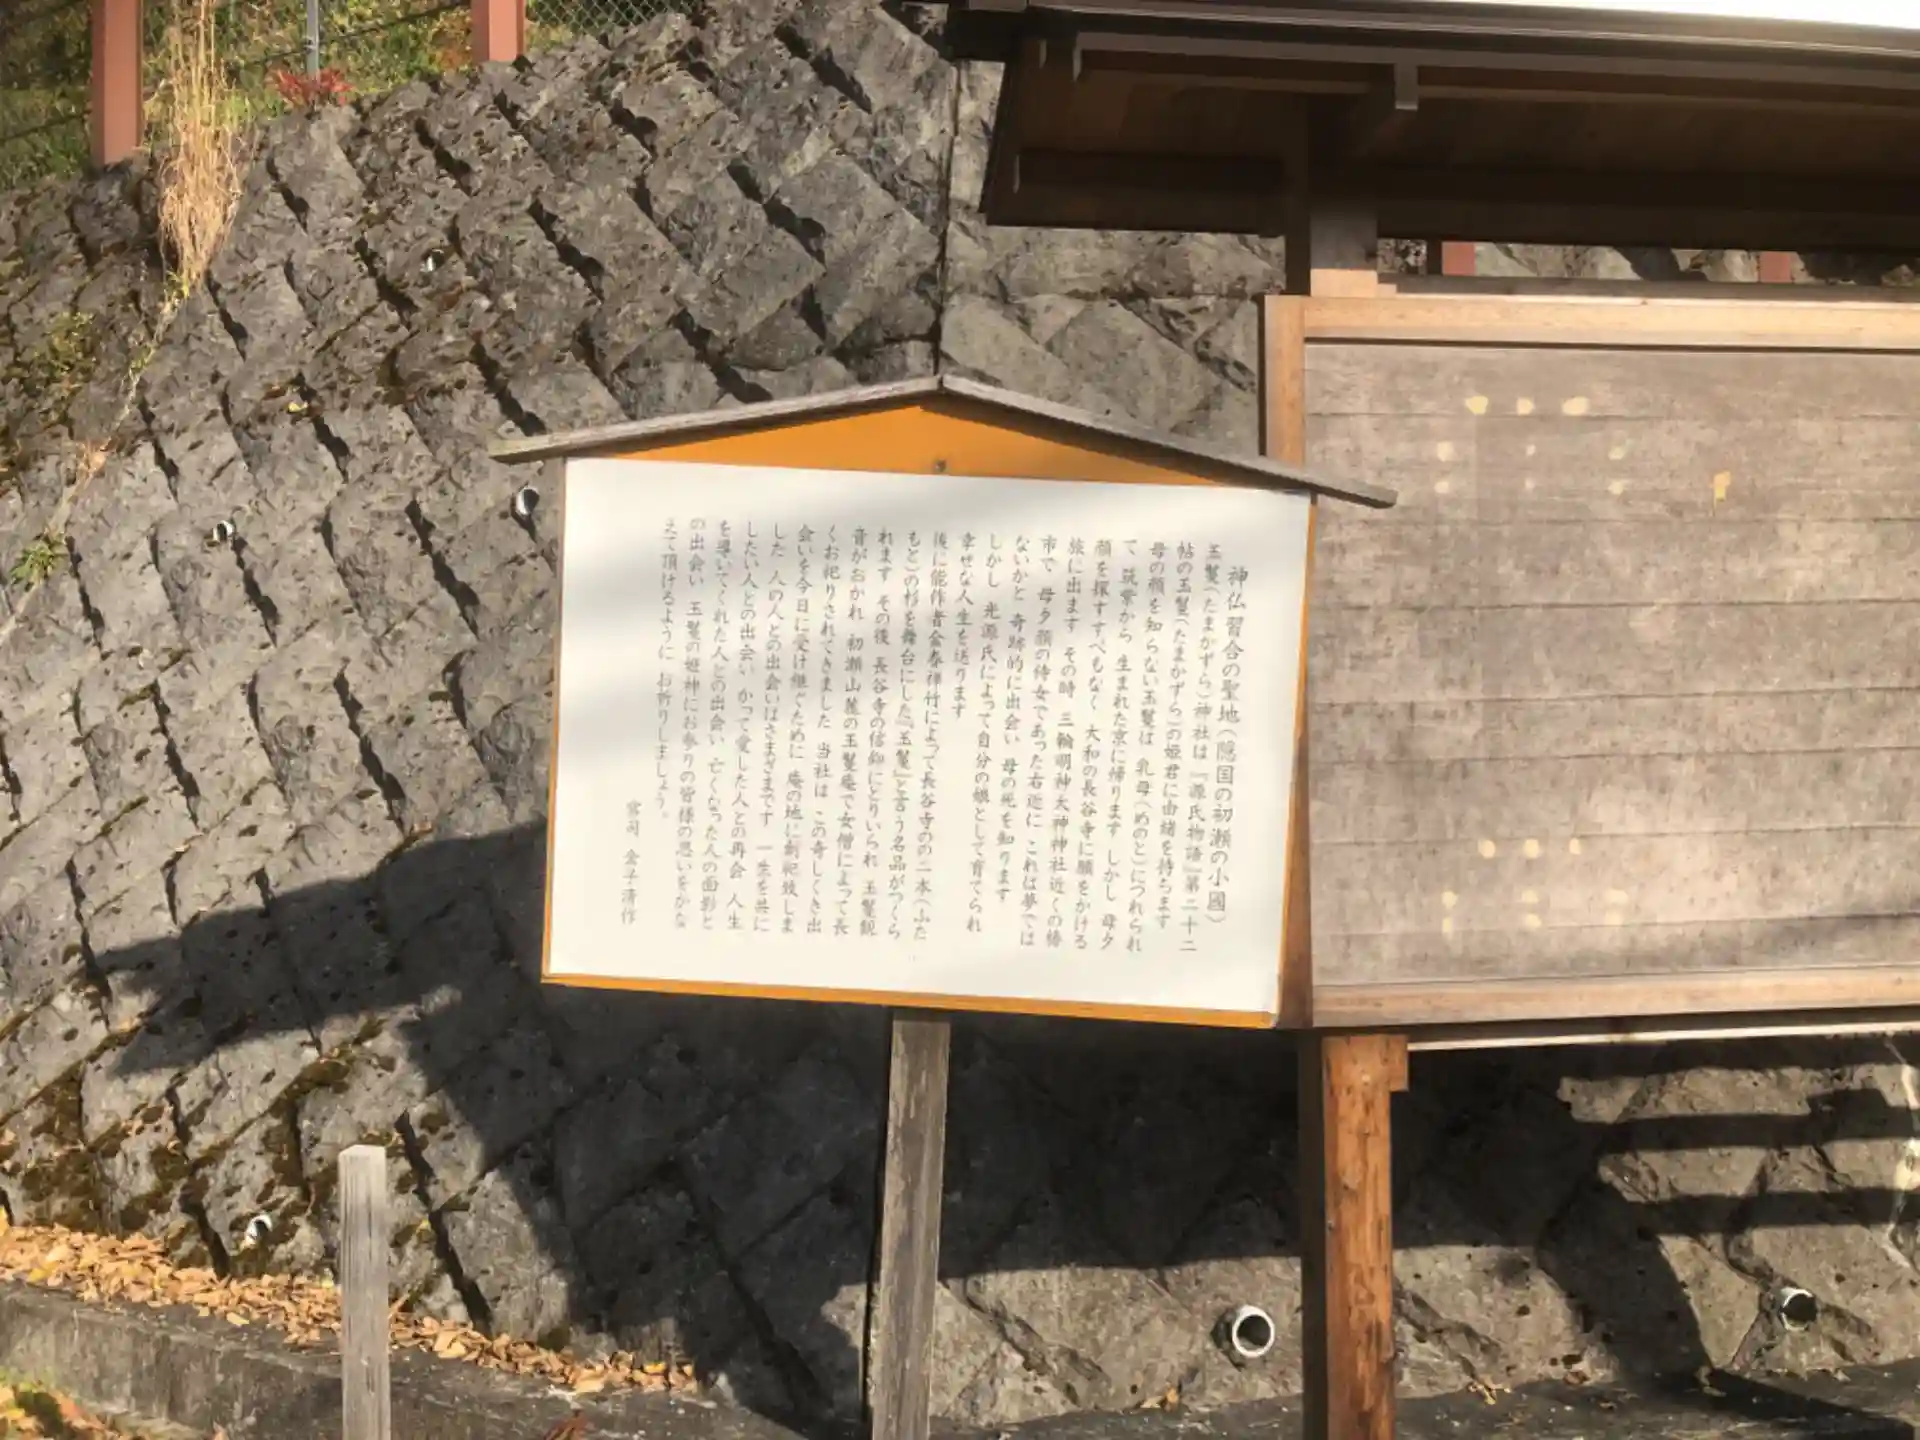 神仏習合の聖地（隠国の初瀬の小國）
玉鬘（たまかずら）神社は『源氏物語』第二十二
帖の玉鬘（たまかずら）の姫君に由緒を持ちます
母の顔を知らない玉鬘は 乳母（めのと）につれられ
て 筑紫から 生まれた京に帰ります しかし 母夕
顔を探すすべもなく 大和の長谷寺に願をかける
旅に出ます その時 三輪明神・大神神社近くの椿
市で 母夕顔の侍女であった右近に これは夢では
ないかと 奇跡的に出会い 母の死を知ります
しかし 光源氏によって自分の娘として育てられ
幸せな人生を送ります
後に能作者金春禅竹によって長谷寺のの二本（ふた
もと）の杉を舞台にした『玉鬘』と言う名品がつくら
れます その後 長谷寺の信仰にとりいられ 玉鬘観
音がおかれ 初瀬山麓の玉鬘庵で女僧によって長
くお祀りされてきました 当社は この奇しくき出
会いを今日に受け継ぐために 庵の地に創祀致しま
した 人の人との出会いはさまざまです 一生を共に
したい人との出会い かって愛した人との再会 人生
を導いてくれた人との出会い 亡くなった人の面影と
の出会い 玉鬘の姫神にお参りの皆様の思いをかな
えて頂けるように お祈りしましょう。
宮司 金子清作